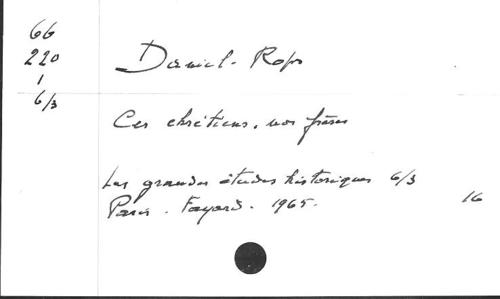 66
220
1
6/3
Daniel-Rops
Ces chrétiens, nos frères
Les grandes études historiques 6/3
Paris. Fayard. 1965.
16